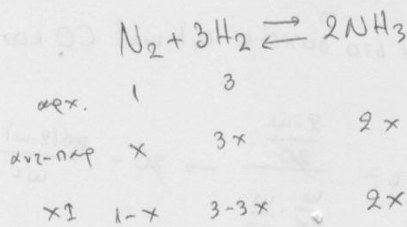 N₂ + 3H₂ ⇌ 2NH₃
αρχ. 1 3
αντ-παρ x 3x 2x
ΧΙ 1-x 3-3x 2x